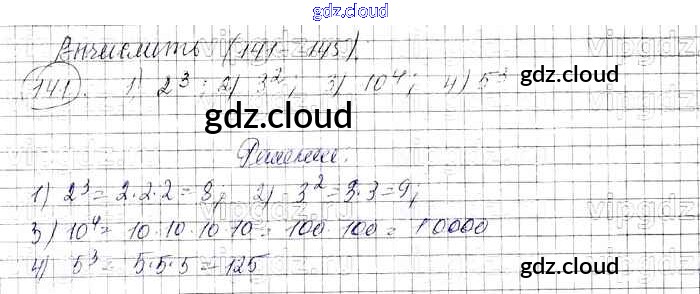 gdz.cloud
Вычислить (141-145).
141. 1) 2³; 2) 3²; 3) 10⁴; 4) 5³
gdz.cloud
gdz.cloud
Решение.
1) 2³ = 2·2·2 = 8; 2) 3² = 3·3 = 9;
3) 10⁴ = 10·10·10·10 = 100·100 = 10000
4) 5³ = 5·5·5 = 125
gdz.cloud